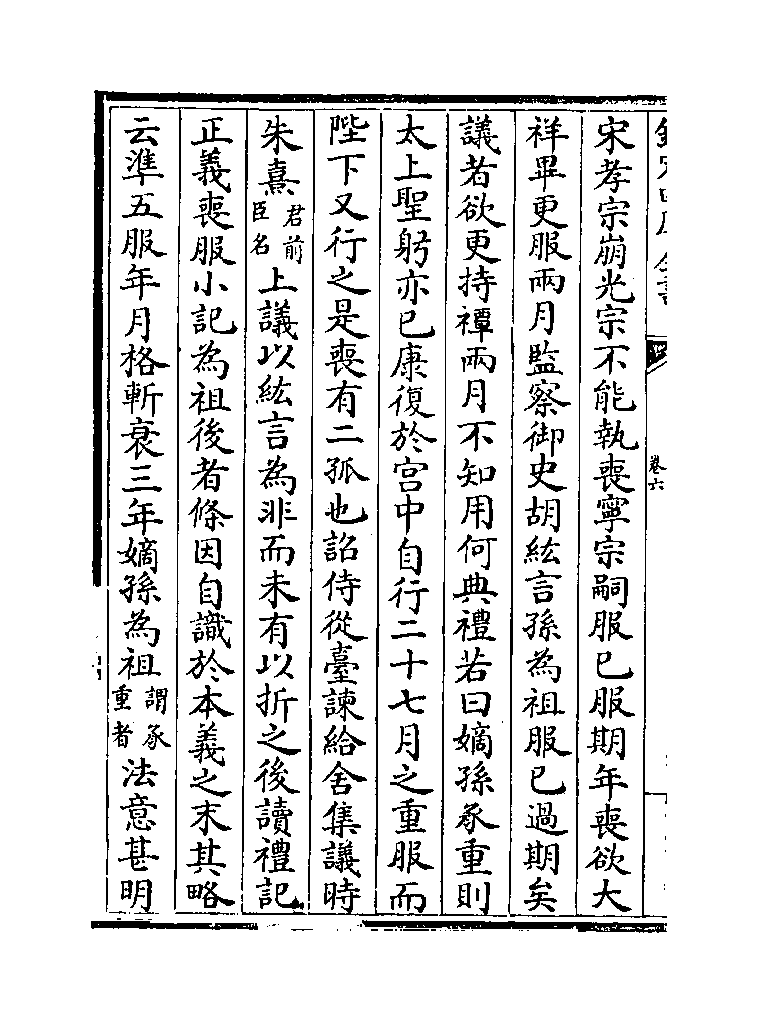 卷六
宋孝宗崩光宗不能執喪寧宗嗣服已服期年喪欲大
祥畢更服兩月監察御史胡紘言孫為祖服已過期矣
議者欲更持禫兩月不知用何典禮若曰嫡孫承重則
太上聖躬亦已康復於宫中自行二十七月之重服而
陛下又行之是喪有二孤也詔侍從臺諫給舍集議時
朱熹君前臣名上議以紘言為非而未有以折之後讀禮記
正義喪服小記為祖後者條因自識於本義之末其略
云準五服年月格斬衰三年嫡孫為祖謂承重者法意甚明